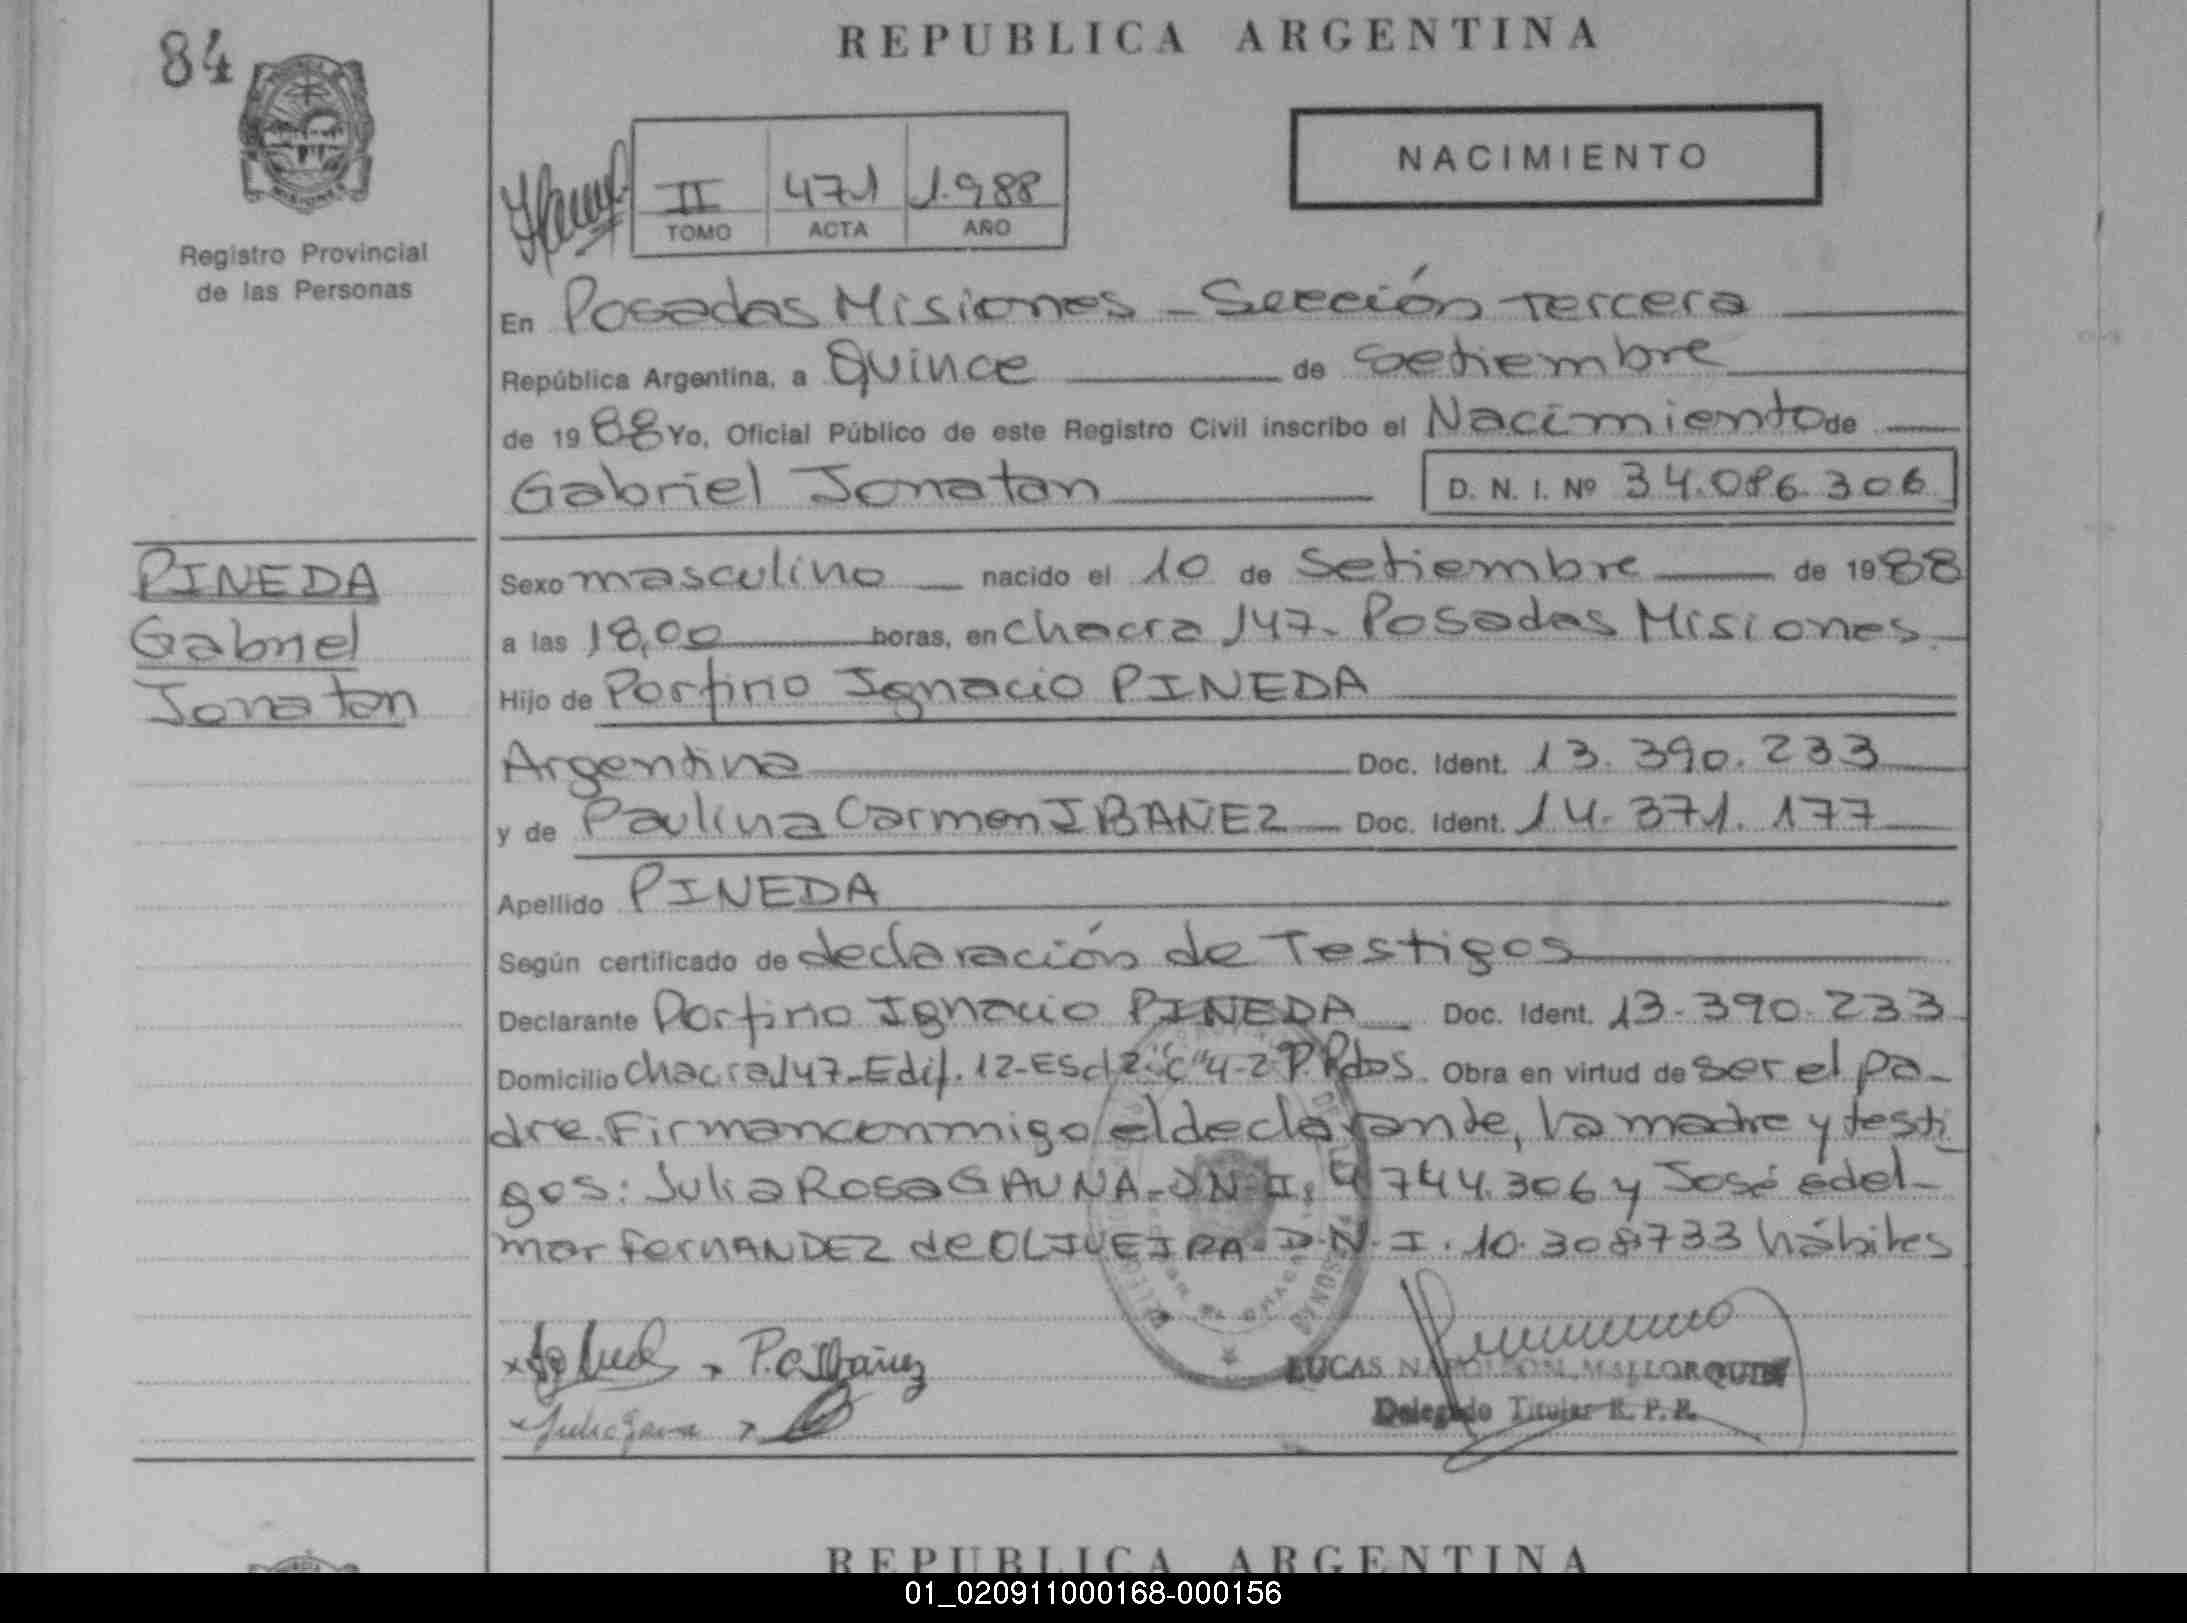 84
REPUBLICA ARGENTINA
NACIMIENTO
II 471 1.988
TOMO ACTA AÑO
Registro Provincial
de las Personas
En Posadas Misiones - Sección Tercera
República Argentina, a Quince de Setiembre
de 1988 Yo, Oficial Público de este Registro Civil inscribo el Nacimiento de
Gabriel Jonatan D. N. I. Nº 34.086.306
PINEDA
Gabriel
Jonatan
Sexo masculino nacido el 10 de Setiembre de 1988
a las 18,00 horas, en chacra 147- Posadas Misiones.
Hijo de Porfirio Ignacio PINEDA
Argentina Doc. Ident. 13.390.233
y de Paulina Carmen IBAÑEZ Doc. Ident. 14.371.177
Apellido PINEDA
Según certificado de declaración de Testigos
Declarante Porfirio Ignacio PINEDA Doc. Ident. 13.390.233
Domicilio chacra 147-Edif. 12-Escl 2-"C"4-2 P. Pdas. Obra en virtud de ser el pa-
dre. Firman conmigo el declarante, la madre y testi-
gos: Julia Rosa GAUNA-D.N.I. 4.744.306 y José edel-
mar fernANDEZ de OLIVEIRA-D.N.I. 10.308.733 hábiles
P.C. Ibañez
Julia Gauna
LUCAS NAPOLEON MALLORQUIN
Delegado Titular R. P. P.
REPUBLICA ARGENTINA
01_020911000168-000156